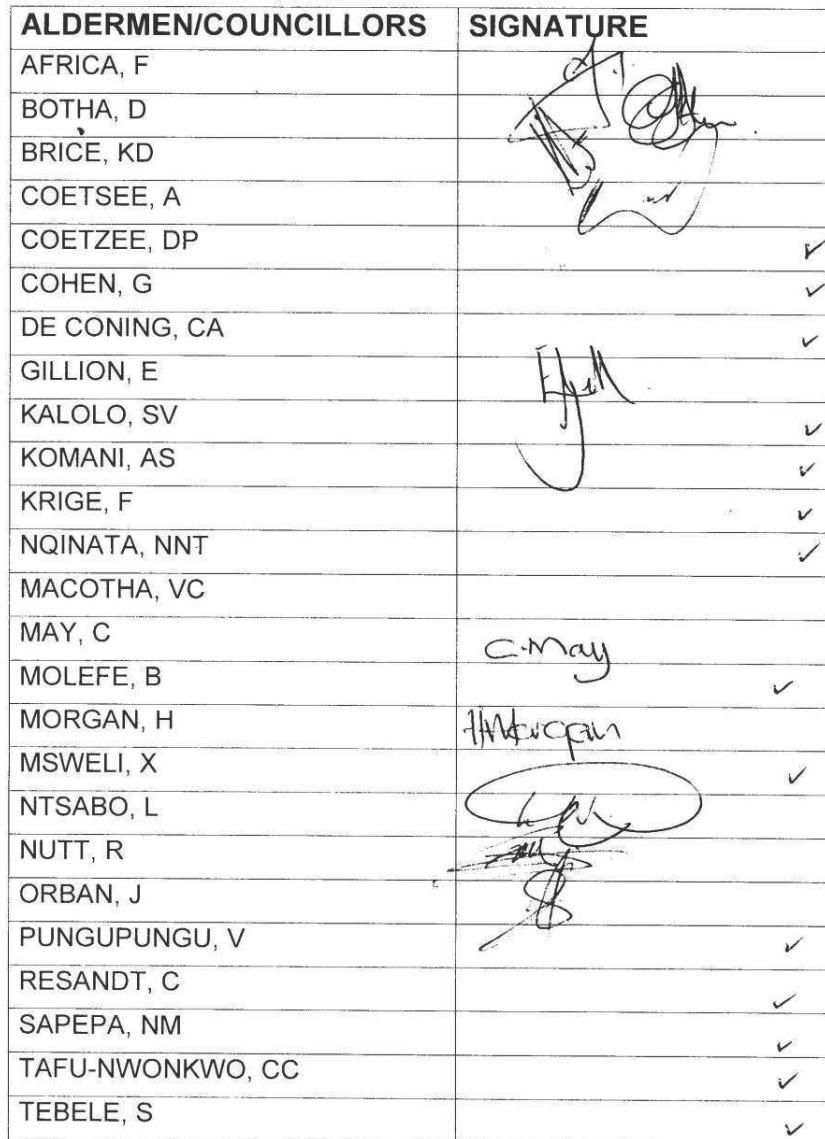 ALDERMEN/COUNCILLORS SIGNATURE
AFRICA, F
BOTHA, D
BRICE, KD
COETSEE, A
COETZEE, DP ✓
COHEN, G ✓
DE CONING, CA ✓
GILLION, E
KALOLO, SV ✓
KOMANI, AS ✓
KRIGE, F ✓
NQINATA, NNT ✓
MACOTHA, VC
MAY, C C. May
MOLEFE, B ✓
MORGAN, H HMorgan
MSWELI, X ✓
NTSABO, L
NUTT, R
ORBAN, J
PUNGUPUNGU, V ✓
RESANDT, C ✓
SAPEPA, NM ✓
TAFU-NWONKWO, CC ✓
TEBELE, S ✓